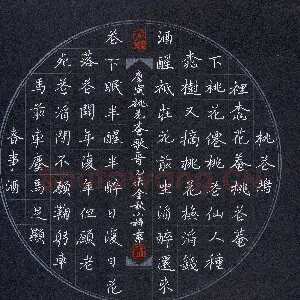 桃花塢
裡桃花菴桃花菴
下桃花僊桃花仙人種
桃樹又摘桃花酒錢
酒醒秪在花前坐酒醉還來
花下眠半醒半醉日復日花
落花開年復年但願老
死花酒間不願鞠躬車
馬前車塵馬足顯
者事酒